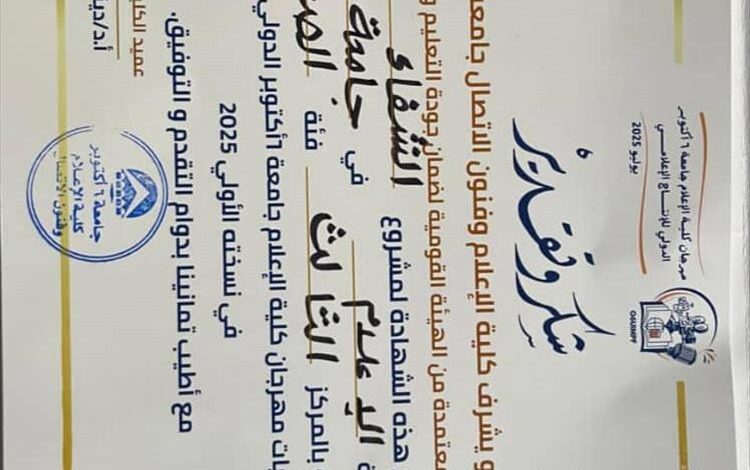 مهرجان كلية الإعلام جامعة ٦ أكتوبر
الدولي للإنتاج الإعلامي
يوليو 2025
شكر و تقدير
و يشرف كلية الإعلام وفنون الاتصال جامعة
معتمدة من الهيئة القومية لضمان جودة التعليم و
هذه الشهادة لمشروع الشفاء
الاعلام في جامعة
بالمركز الثالث فئة
مهرجان كلية الإعلام جامعة ٦أكتوبر الدولي
في نسخته الأولي 2025
مع أطيب تمانينا بدوام التقدم و التوفيق.
عميد
أ.د/
جامعة ٦ أكتوبر
كلية الإعلام
وفنون الاتصال